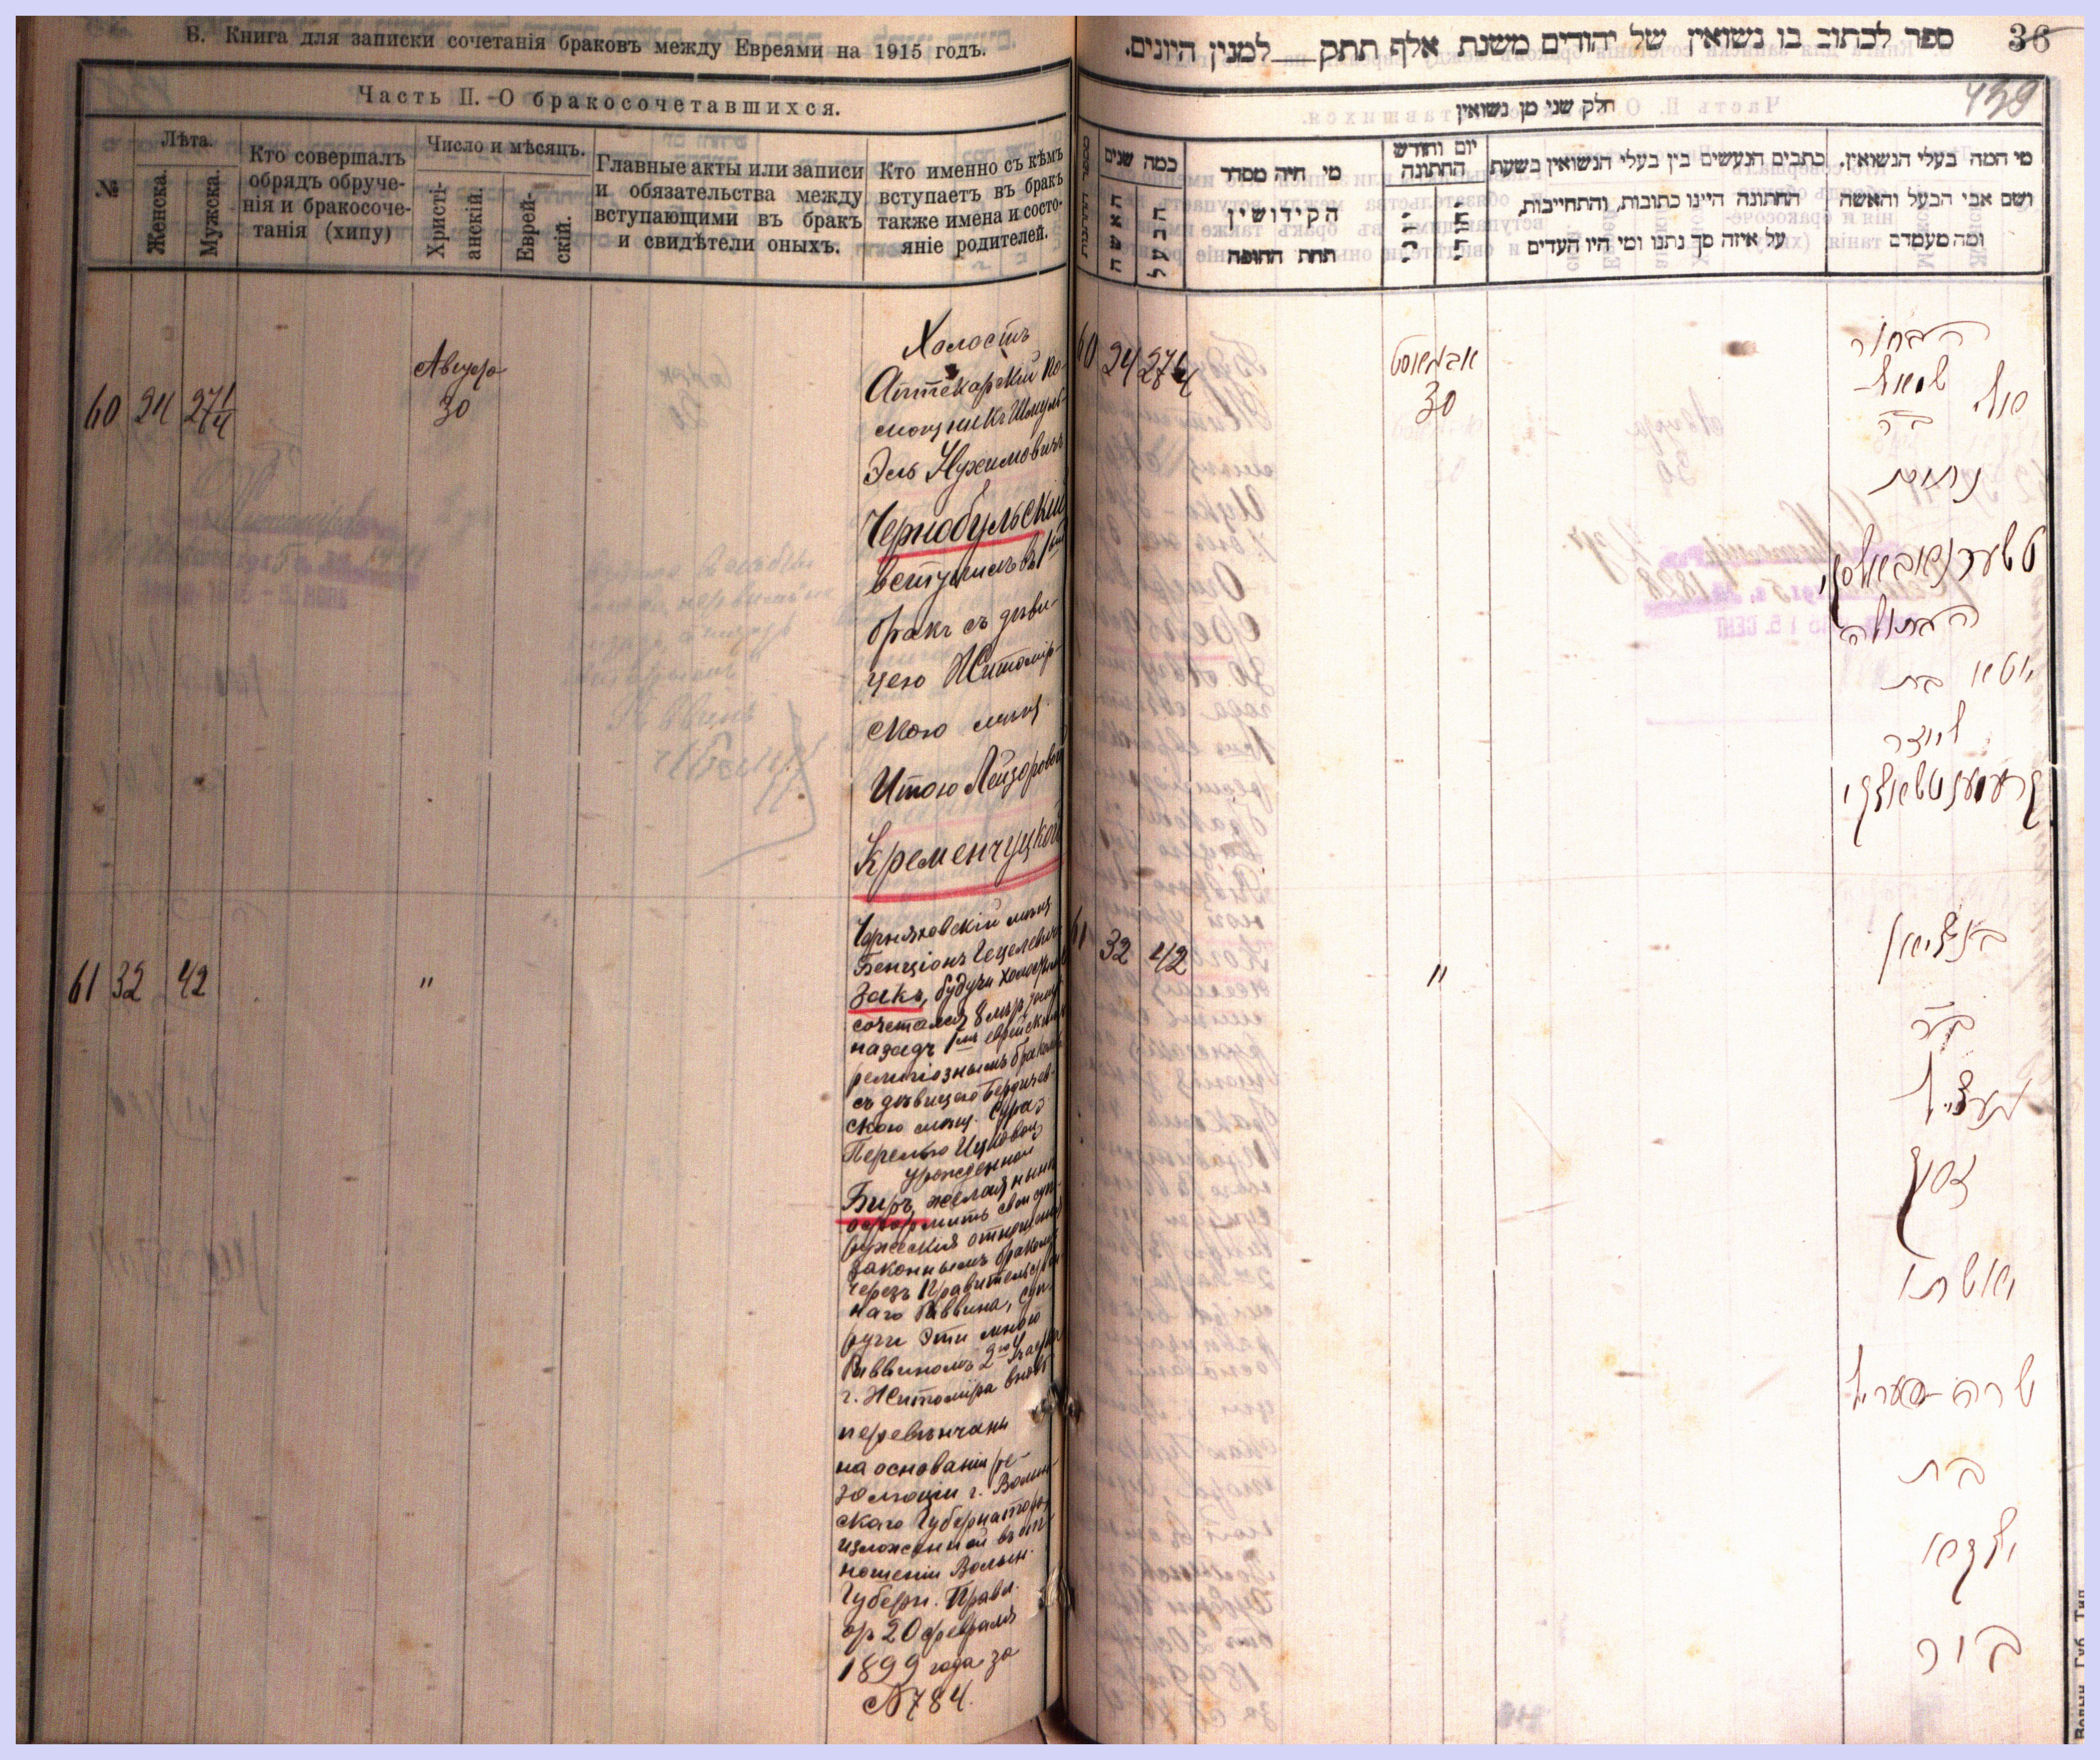 Б. Книга для записки сочетанія браковъ между Евреями на 1915 годъ.
Часть II.-О бракосочетавшихся.
№
Лѣта.
Женска.
Мужска.
Кто совершалъ
обрядъ обруче-
нія и бракосоче-
танія (хипу)
Число и мѣсяцъ.
Христі-
анскій.
Еврей-
скій.
Главные акты или записи
и обязательства между
вступающими въ бракъ
и свидѣтели оныхъ.
Кто именно съ кѣмъ
вступаетъ въ бракъ
также имена и состо-
яніе родителей.
60 24 27 1/4
Августа
30
Холостъ
Аптекарскій по-
мощникъ Шмуль-
Эль Нухимовичъ
Чернобульскій
вступилъ въ 1ый
бракъ съ дѣви-
цею Житомір-
скою мѣщ.
Итою Лейзоровой
Кременчуцкой
61 32 42
"
Черняховскій мѣщ.
Бенціонъ Гецелевичъ
Закъ, будучи холостымъ
сочетался 8 лѣтъ тому
назадъ 1мъ еврейскимъ
религіознымъ бракомъ
съ дѣвицею Бердичев-
скою мѣщ. Сура-
Перелью Ицковой
урожденной
Биръ, желая нынѣ
оформить свои суп-
ружескія отношенія
законнымъ бракомъ
черезъ Правительствен-
наго Раввина, суп-
руги эти мною
Раввиномъ 2го участка
г. Житоміра вновь
перевѣнчаны
на основаніи ре-
золюціи г. Волын-
скаго Губернатора,
изложенной въ от-
ношеніи Волын.
Губерн. Правл.
от 20 февраля
1899 года за
№ 784.
ספר לכתוב בו נשואין של יהודים משנת אלף תתק___למנין היונים.
36
439
חלק שני מן נשואין
כמה שנים
האשה
הבעל
מי היה מסדר
הקידושין
תחת החופה
יום וחודש
החתונה
כתבים הנעשים בין בעלי הנשואין בשעת
החתונה היינו כתובות, והתחייבות,
על איזה סך נתנו ומי היו העדים
מי המה בעלי הנשואין.
ושם אבי הבעל והאשה
ומה מעמדם
60 24 27 1/4
אבגוסט
30
הבחור
שמואל
בר
נחום
טשערנאבאלסקי
הבתולה
יטא בת
לייזר
קרעמענטשוצקי
61 32 42
"
בנציאן
בר
געציל
זאק
ואשתו
שרה-פעריל
בת
יצקא
ביר